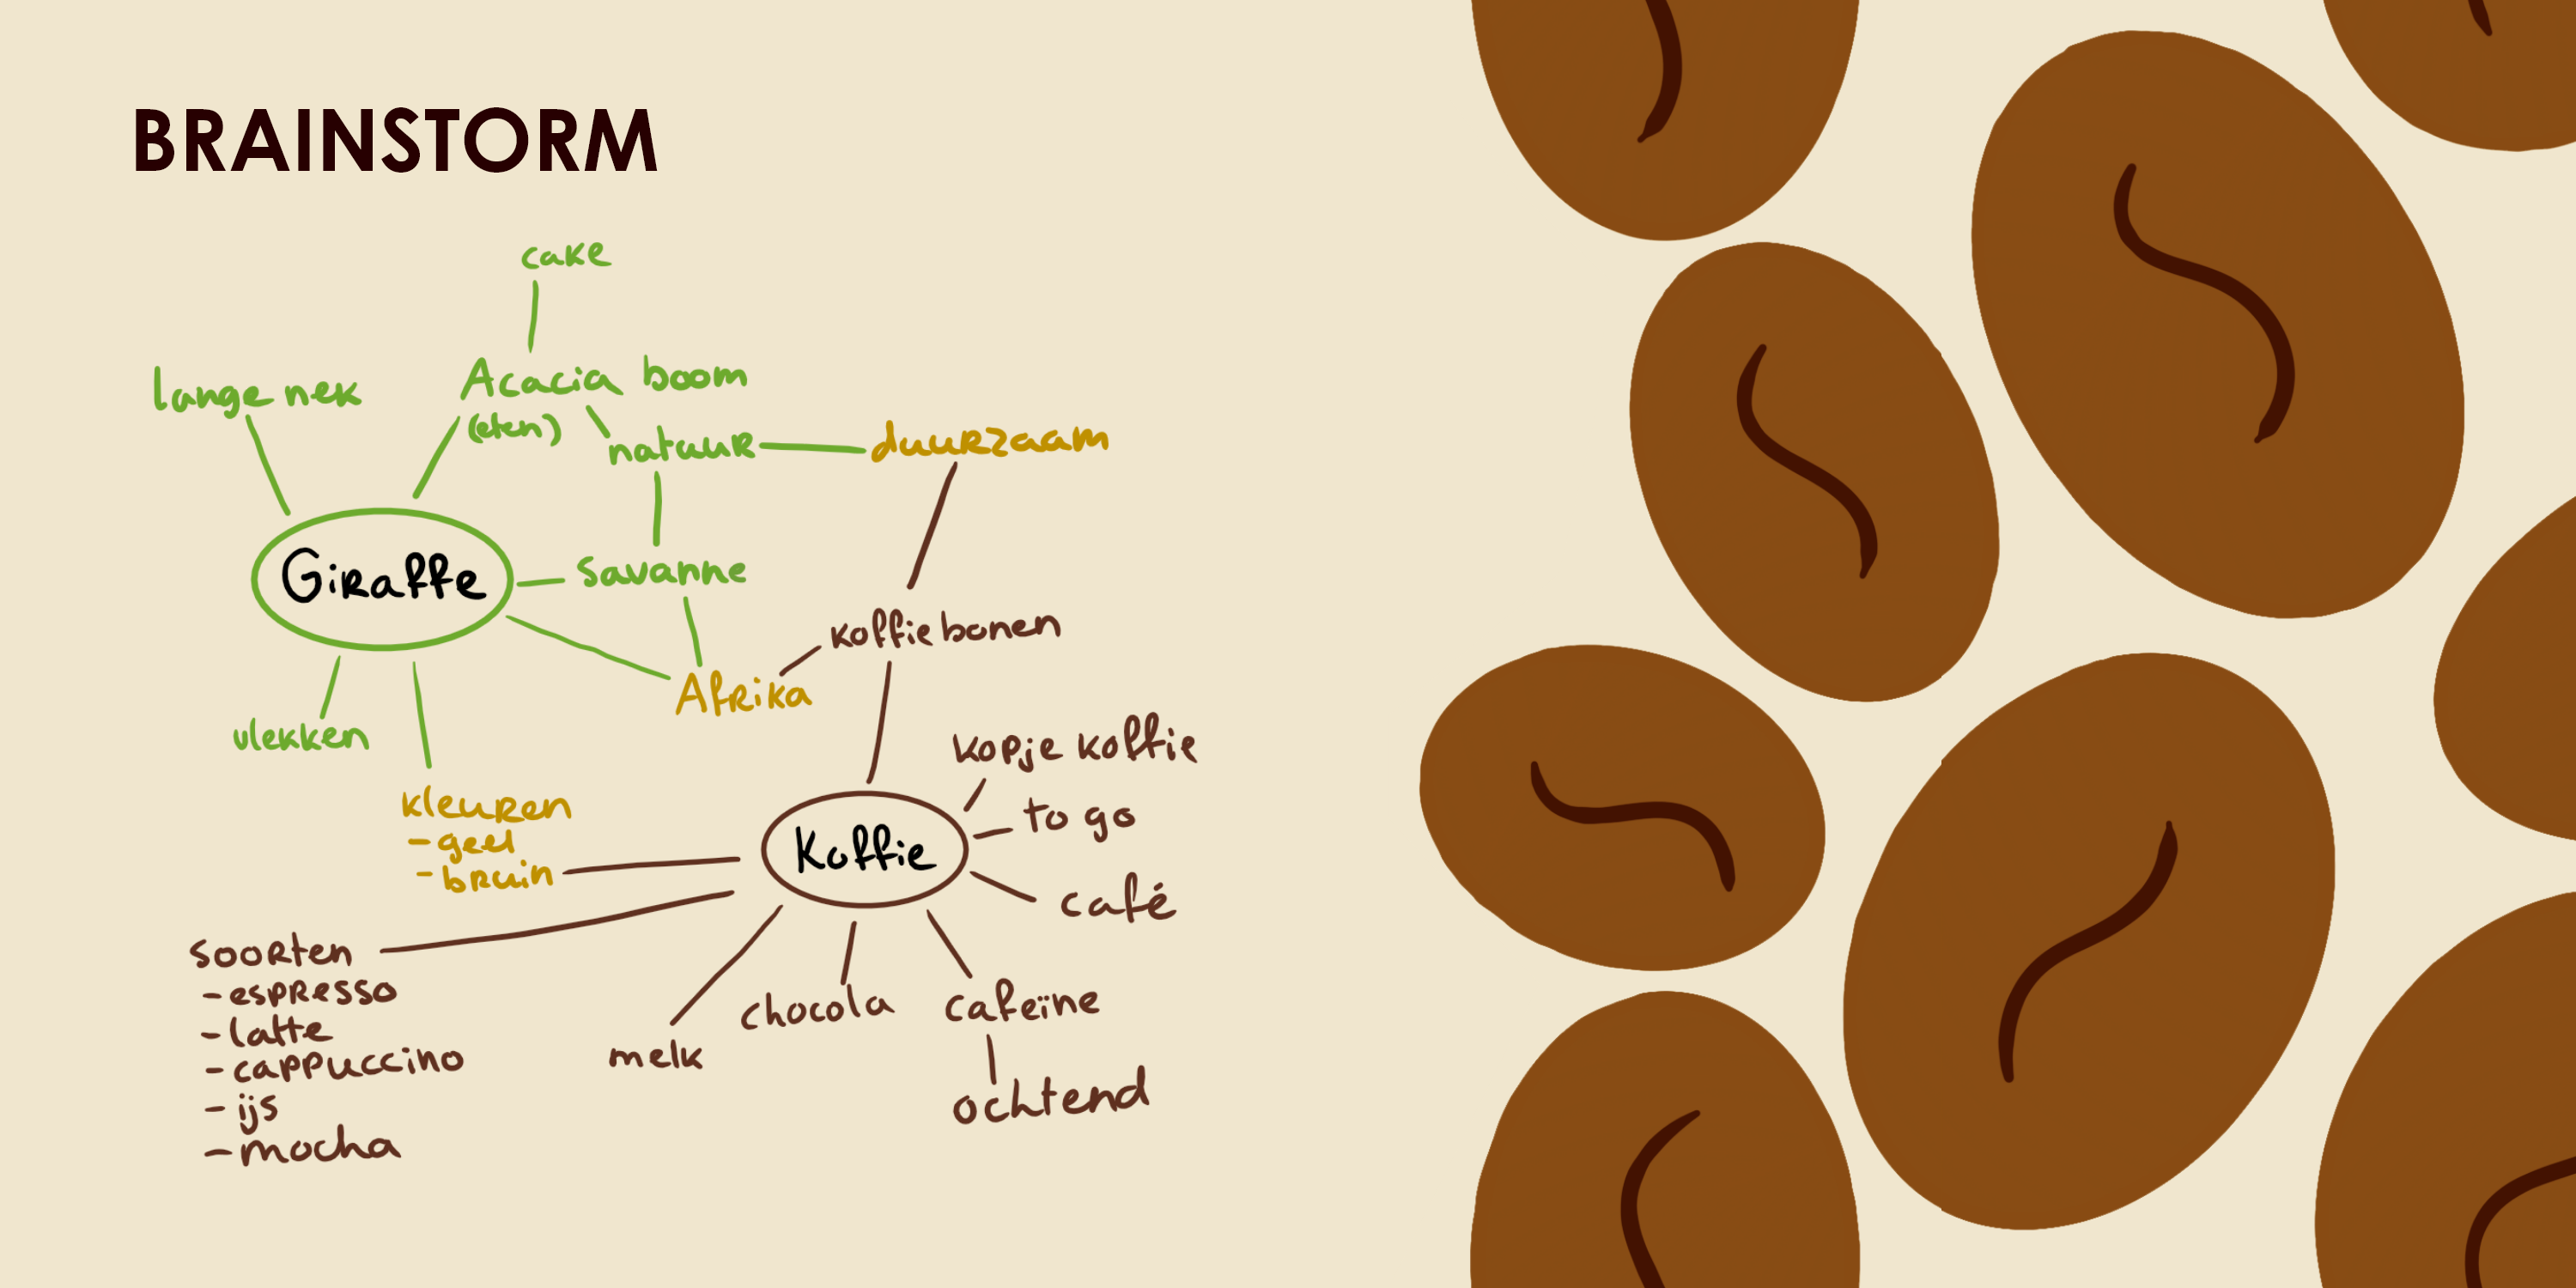 BRAINSTORM
cake
lange nek
Acacia boom
(eten)
natuur
duurzaam
Giraffe
savanne
koffiebonen
Afrika
vlekken
kleuren
- geel
- bruin
kopje koffie
to go
Koffie
café
soorten
- espresso
- latte
- cappuccino
- ijs
- mocha
melk
chocola
cafeïne
ochtend